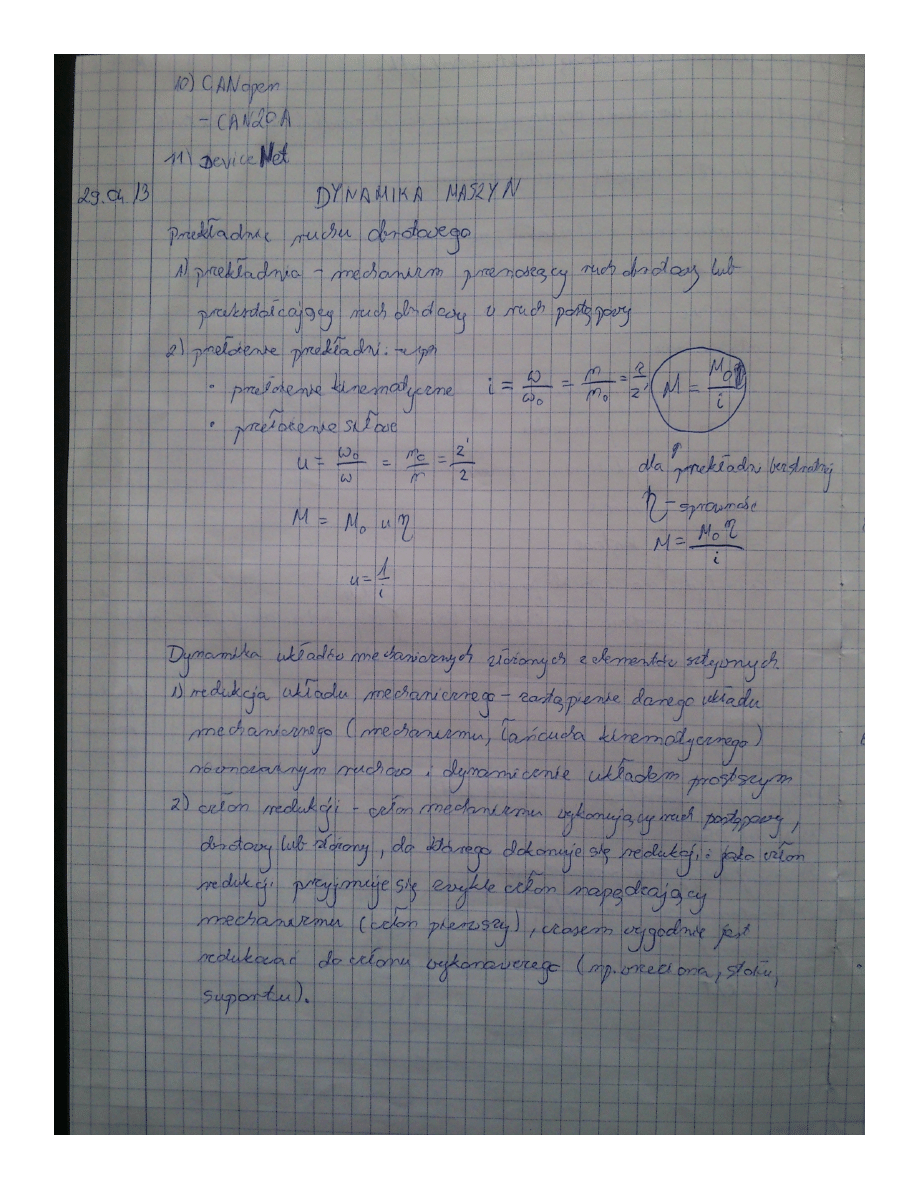 10) CANopen
- CAN20A
11) DeviceNet
29.04.13 DYNAMIKA MASZYN
przekładnie ruchu obrotowego
1) przekładnia - mechanizm przenoszący ruch obrotowy lub
przekształcający ruch obrotowy w ruch postępowy
2) przełożenie przekładni:
• przełożenie kinematyczne i = ω/ω₀ = n/n₀ = z/z' M = M₀/i
• przełożenie siłowe
u = ω₀/ω = n₀/n = z'/z
dla przekładni bezstratnej
M = M₀ u η
η - sprawność
M = M₀ η/i
u = 1/i
Dynamika układów mechanicznych złożonych z elementów sztywnych.
1) redukcja układu mechanicznego - zastąpienie danego układu
mechanicznego (mechanizmu, łańcucha kinematycznego)
równoważnym ruchowo i dynamicznie układem prostszym
2) człon redukcji - człon mechanizmu wykonujący ruch postępowy,
obrotowy lub złożony, do którego dokonuje się redukcji; jako człon
redukcji przyjmuje się zwykle człon napędzający
mechanizmu (człon pierwszy), czasem wygodnie jest
redukować do członu wykonawczego (np. wrzeciona, stołu,
suportu).